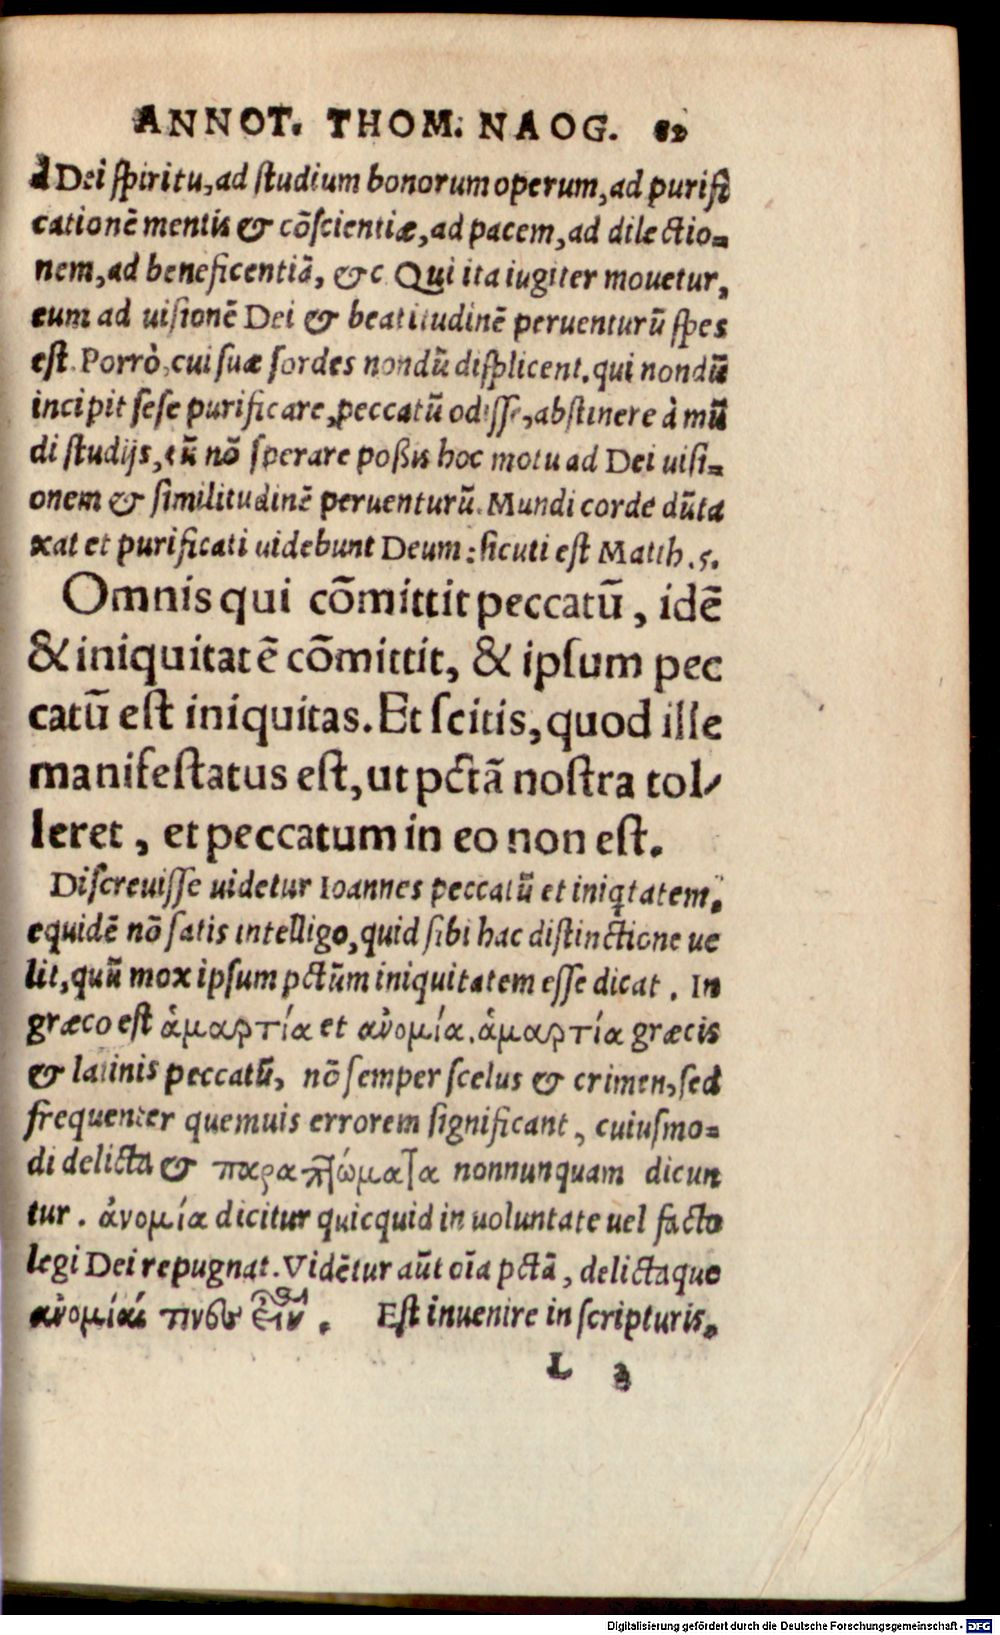 ANNOT. THOM. NAOG. 82
à Dei ſpiritu, ad ſtudium bonorum operum, ad purifi
cationē mentis & cōſcientiæ, ad pacem, ad dilectio=
nem, ad beneficentiā, &c Qui ita iugiter mouetur,
eum ad uiſionē Dei & beatitudinē peruenturū ſpes
eſt. Porrò, cui ſuæ ſordes nondū diſplicent, qui nondū
incipit ſeſe purificare, peccatū odiſſe, abſtinere à mū
di ſtudijs, eū nō ſperare poßis hoc motu ad Dei uiſi=
onem & ſimilitudinē peruenturū. Mundi corde dūta
xat et purificati uidebunt Deum: ſicuti eſt Matth. 5.
Omnis qui cōmittit peccatū, idē
& iniquitatē cōmittit, & ipſum pec
catū eſt iniquitas. Et ſcitis, quod ille
manifeſtatus eſt, ut pctā noſtra tol/
leret, et peccatum in eo non eſt.
Diſcreuiſſe uidetur Ioannes peccatū et iniq̃tatem,
equidē nō ſatis intelligo, quid ſibi hac diſtinctione ue
lit, quū mox ipſum pctūm iniquitatem eſſe dicat. In
græco eſt ἁμαρτία et ανομία. ἁμαρτία græcis
& latinis peccatū, nō ſemper ſcelus & crimen, ſed
frequenter quemuis errorem ſignificant, cuiuſmo=
di delicta & παραπτώματα nonnunquam dicun
tur. ἀνομία dicitur quicquid in uoluntate uel facto
legi Dei repugnat. Vidētur aūt oīa pctā, delictaque
Eſt inuenire in ſcripturis,
L 2
Digitalisierung gefördert durch die Deutsche Forschungsgemeinschaft - DFG